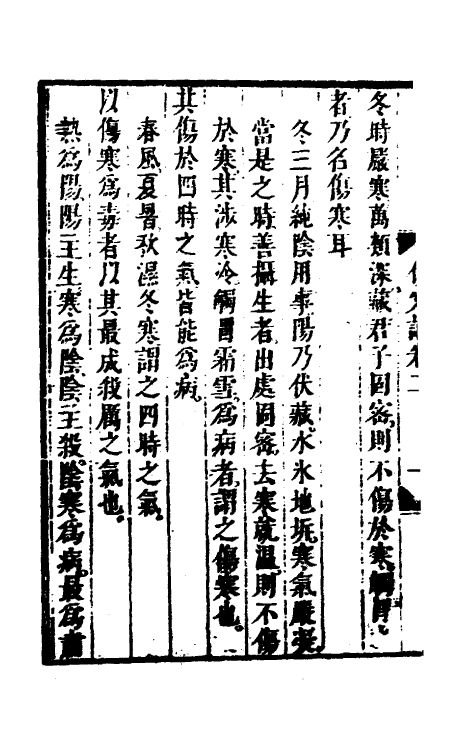 冬時嚴寒萬類深藏君子固密則不傷於寒觸冒
者乃名傷寒耳
冬三月純陰用事陽乃伏藏水氷地坼寒氣嚴凝
當是之時善攝生者出處固密去寒就溫則不傷
於寒其涉寒冷觸冒霜雪為病者謂之傷寒也
其傷於四時之氣皆能為病
春風夏暑秋濕冬寒謂之四時之氣
以傷寒為毒者以其最成殺厲之氣也
熱為陽陽主生寒為陰陰主殺陰寒為病最為